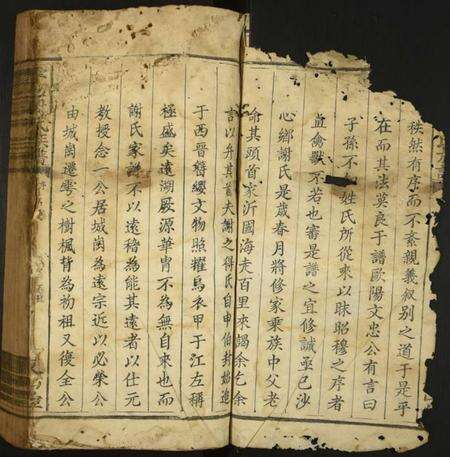 秩然有序而不紊親義叙别之道于是乎
在而其法莫良于譜歐陽文忠公有言曰
子孫不姓氏所從來以昧昭穆之序者
直禽獸不若也審是譜之宜修誠亟已沙
心鄉謝氏是歲春月將修家乘族中父老
命其頭首裒沂國海走百里來謁余乞余
言以弁其首夫謝之得氏自申伯封始逮
于西晉簪纓文物照耀烏衣甲于江左稱
極盛矣遠溯厥源華胄不為無自來也而
謝氏家譜不以遠稽為能其遠者以仕元
教授念一公居城崗為遠宗近以必榮公
由城崗遷雩之樹楓背為初祖又後全公